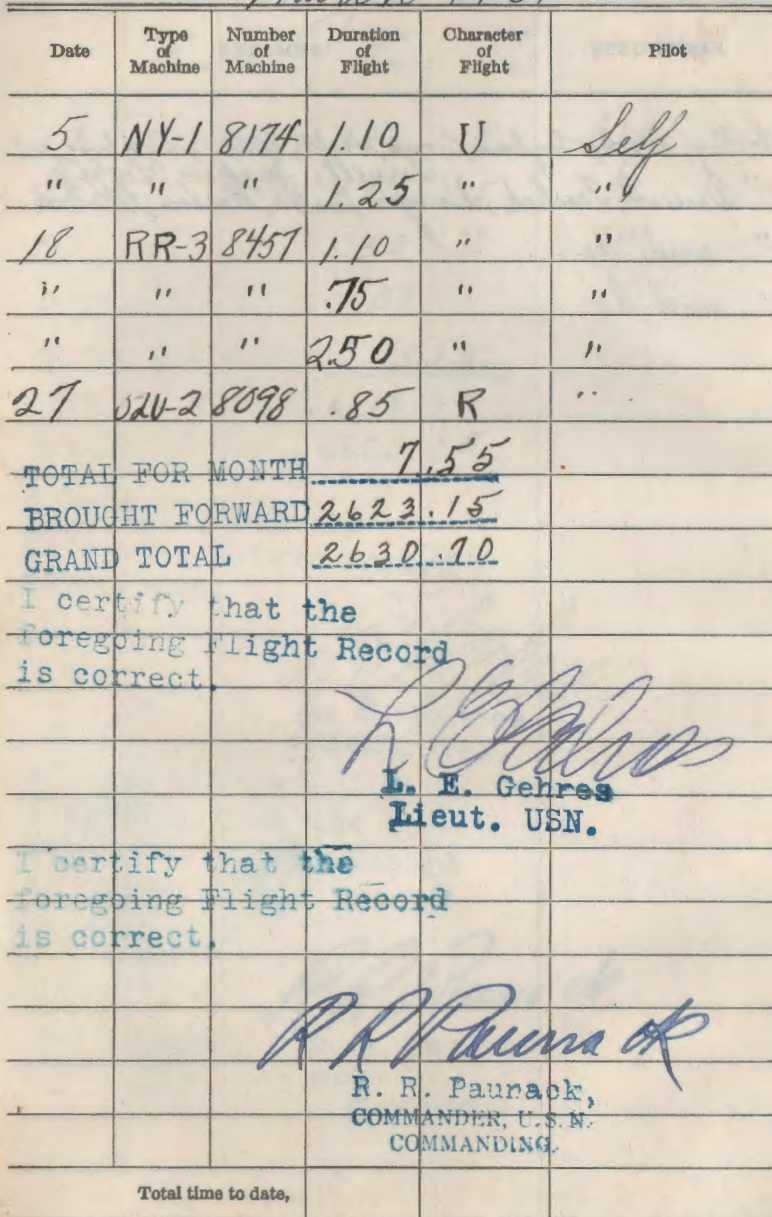 Date Type of Machine Number of Machine Duration of Flight Character of Flight Pilot
5 NY-1 8174 1.10 U Self
" " " 1.25 " "
18 RR-3 8457 1.10 " "
" " " .75 " "
" " " 2.50 " "
27 O2U-2 8098 .85 R "
TOTAL FOR MONTH 7.55
BROUGHT FORWARD 2623.15
GRAND TOTAL 2630.70
I certify that the
foregoing Flight Record
is correct.
L E Gehres
L. E. Gehres
Lieut. USN.
I certify that the
foregoing Flight Record
is correct.
R R Paunack
R. R. Paunack,
COMMANDER, U.S.N.
COMMANDING.
Total time to date,